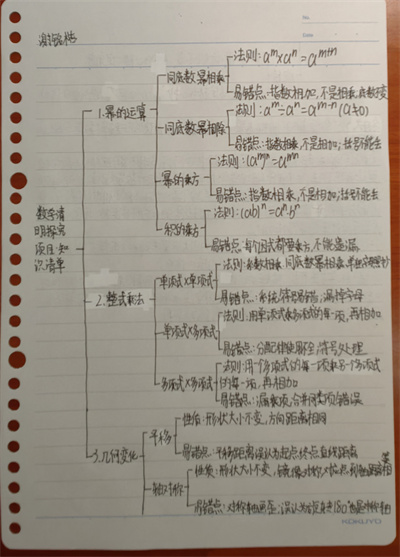 No.
Date
法则：aᵐ×aⁿ=aᵐ⁺ⁿ
同底数幂相乘
易错点：指数相加，不是相乘，底数不变
1.幂的运算
法则：aᵐ÷aⁿ=aᵐ⁻ⁿ(a≠0)
同底数幂相除
易错点：指数相减，不是相加；括号不能丢
法则：(aᵐ)ⁿ=aᵐⁿ
幂的乘方
易错点：指数相乘，不是相加；括号不能丢
法则：(ab)ⁿ=aⁿbⁿ
积的乘方
易错点：每个因式都要乘方，不能遗漏
数学清
明探究
项目：知
识清单
2.整式乘法
法则：系数相乘，同底数幂相乘
单项式×单项式
易错点：系数符号易错，漏掉字母
法则：用单项式乘多项式的每一项，再相加
单项式×多项式
易错点：分配律使用错，符号处理
法则：用一个多项式的每一项乘另一个多项式
的每一项，再相加
多项式×多项式
易错点：漏乘项，合并同类项错误
3.几何变化
性质：形状大小不变，方向距离相同
平移
易错点：平移距离误认为起点终点直线距离
性质：形状大小不变，镜像对称，对应点到
轴对称
易错点：对称轴画歪，误认为旋转180°也是轴对称
KOKUYO